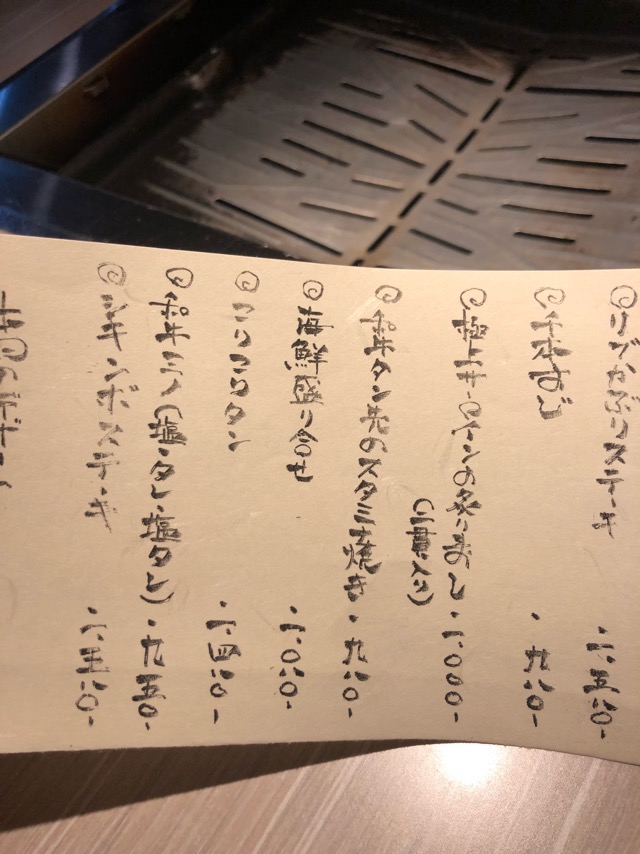 ◎リブかぶりステーキ ・二、五八〇-
◎千本すじ ・九八〇-
◎極上サーロインの炙り寿し ・二、〇〇〇-
(二貫入り)
◎和牛タン先のスタミナ焼き ・九八〇-
◎海鮮盛り合せ ・二、〇八〇-
◎コリコリタン ・一、四八〇-
◎和牛ミノ(塩・タレ・塩タレ) ・九五〇-
◎シキンボステーキ ・二、五八〇-